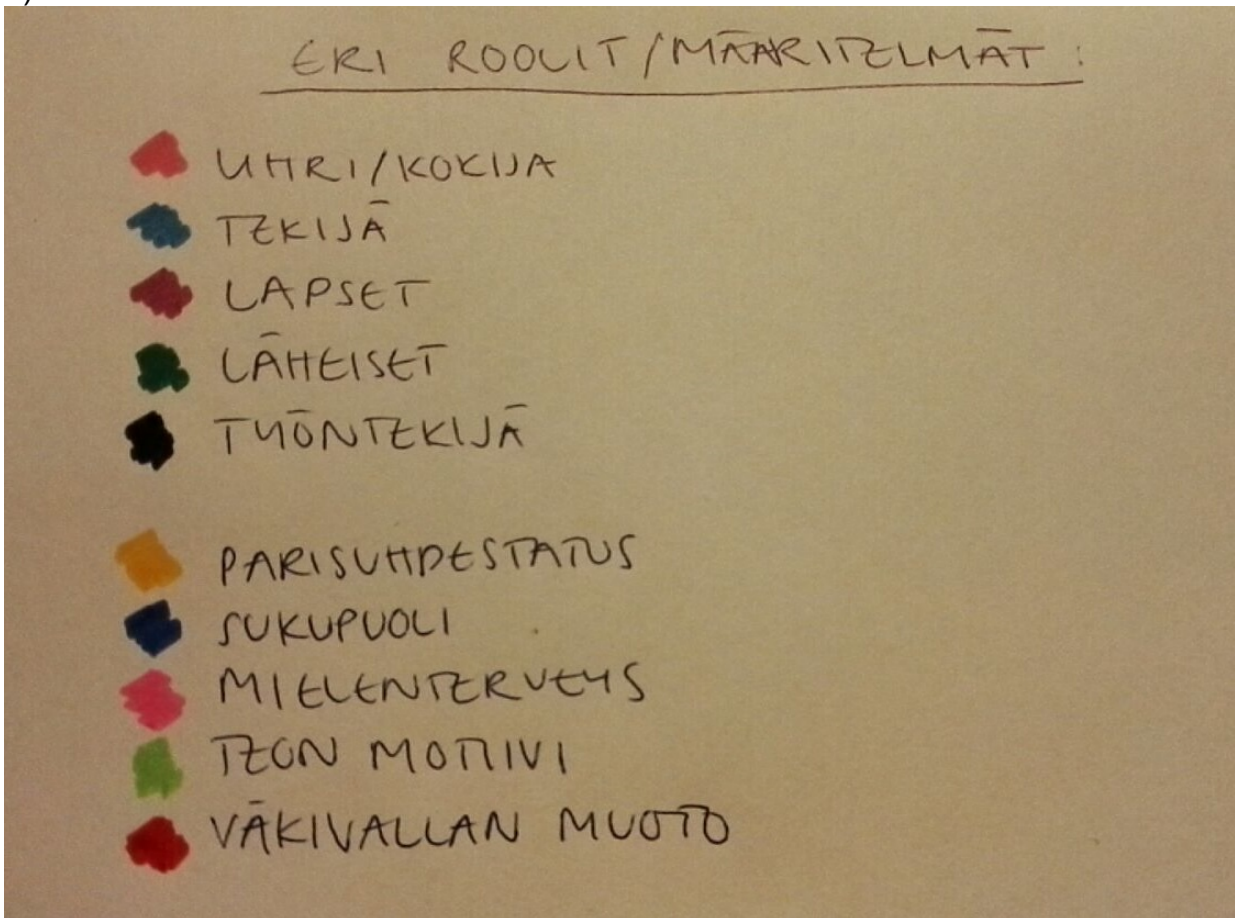 ERI ROOLIT/MÄÄRITELMÄT:
UHRI/KOKIJA
TEKIJÄ
LAPSET
LÄHEISET
TYÖNTEKIJÄ
PARISUHDESTATUS
SUKUPUOLI
MIELENTERVEYS
TEON MOTIIVI
VÄKIVALLAN MUOTO